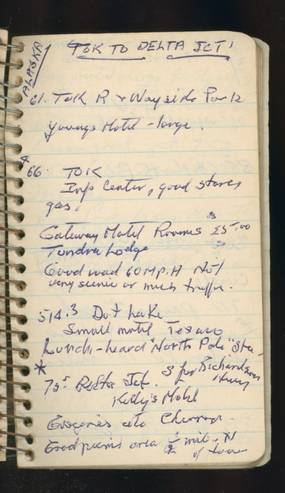 ALASKA
TOK TO DELTA JCT!
61. Tok R & Wayside Park
Youngs Motel - large.
66. TOK
Info Center, good stores
gas.
Gateway Motel Rooms 25.00
Tundra Lodge
Good road 60 M.P.H Not
very scenic or much traffic.
514.3 Dot Lake
Small motel Texaco
Lunch - heard "North Pole"
* 75 Delta Jct. Richardson
Hwy
Kelly's Motel
Groceries etc Chevron.
Good picnic area ½ mile N
of town